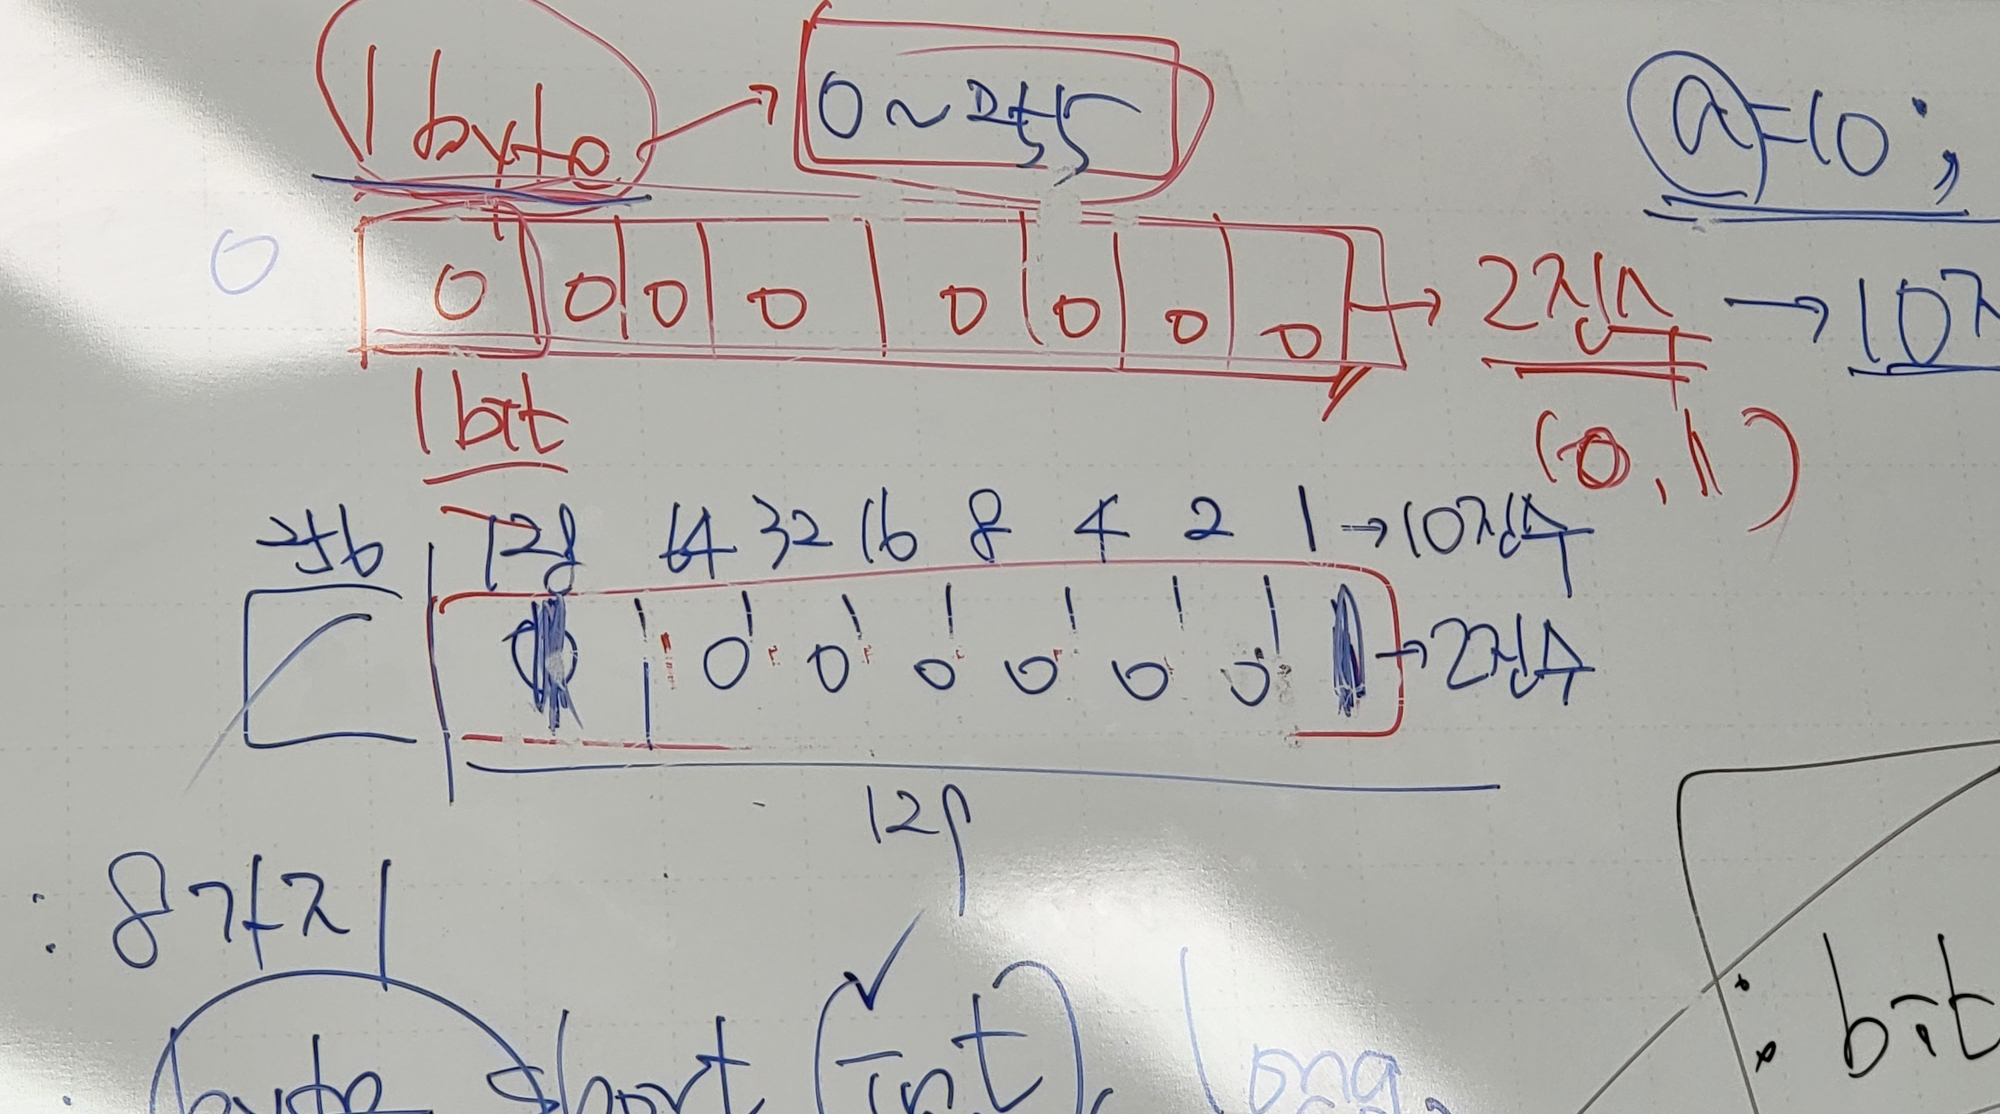 1 byte → 0 ~ 255
a = 10 ;
0
0 0 0 0 0 0 0 0 → 2진수 → 10진
1 bit
(0, 1)
256 128 64 32 16 8 4 2 1 → 10진수
0 0 0 0 0 0 → 2진수
: 8가지
: byte short (int), long,
: bit